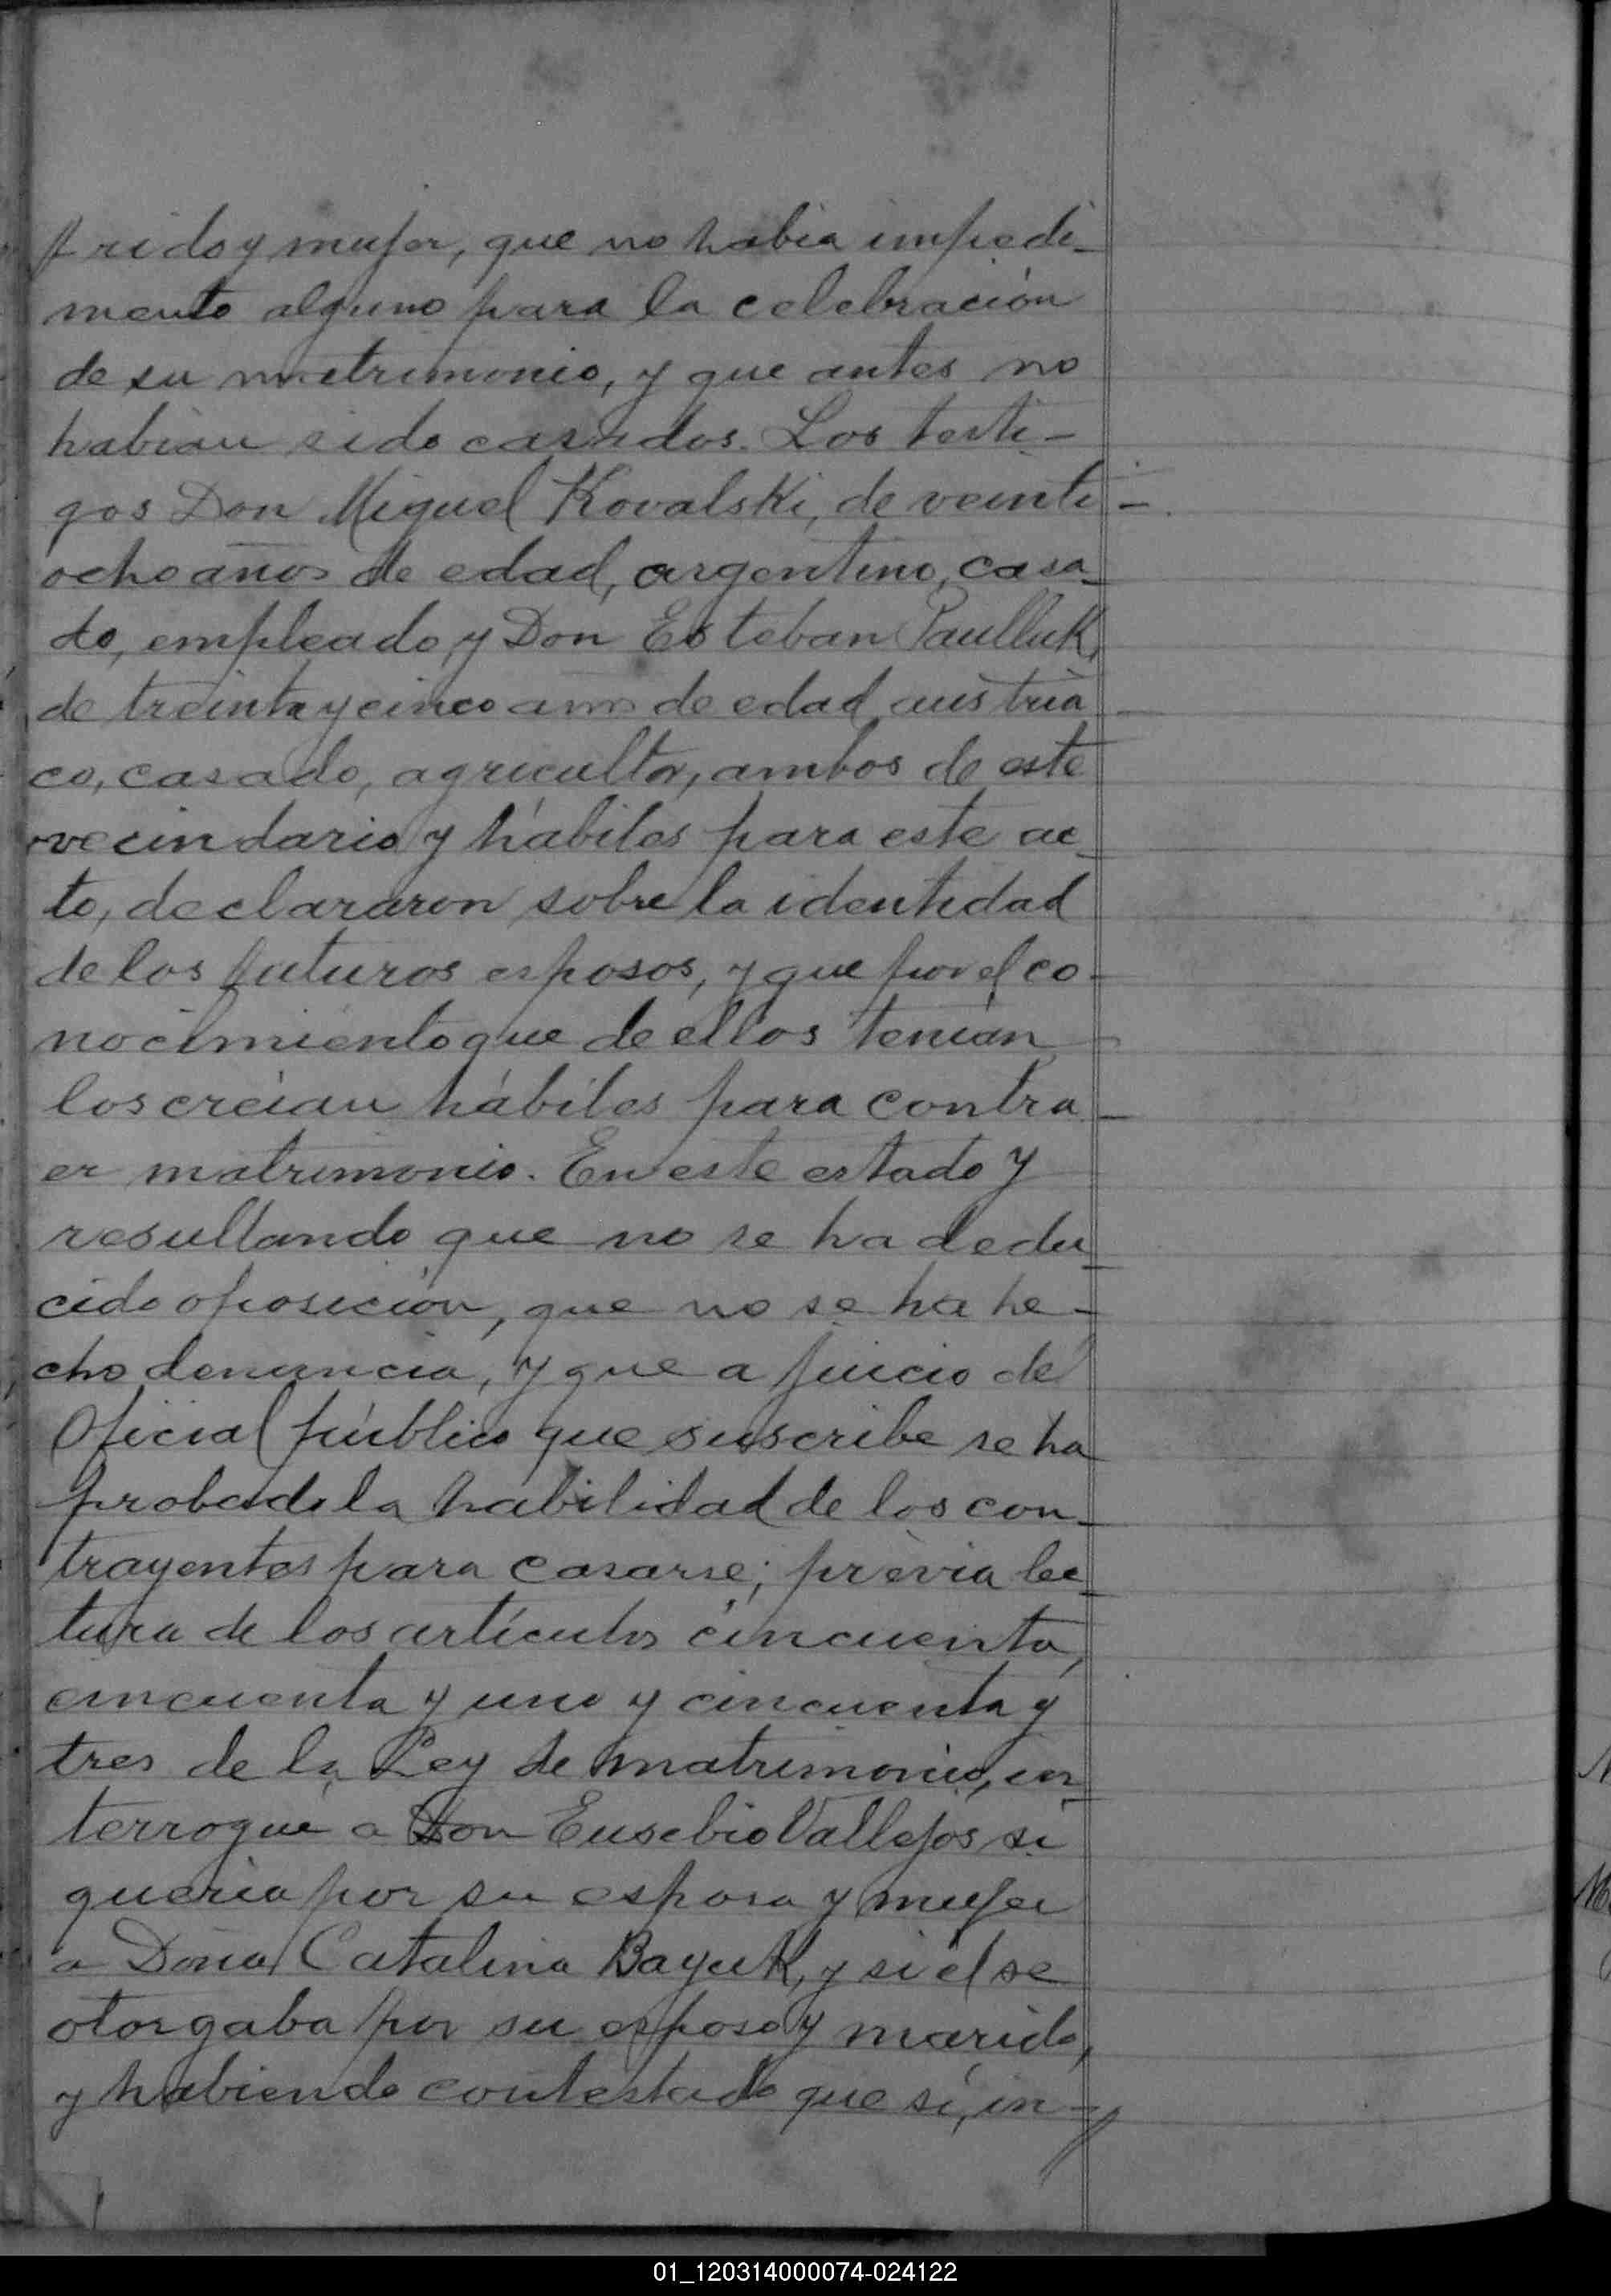 rido y mujer, que no habia impedi-
mento alguno para la celebración
de su matrimonio, y que antes no
habian sido casados. Los testi-
gos Don Miguel Kovalski, de veinti-
ocho años de edad, argentino, casa-
do, empleado, y Don Esteban Paulluk,
de treinta y cinco años de edad, austria
co, casado, agricultor, ambos de este
vecindario y hábiles para este ac-
to, declararon sobre la identidad
de los futuros esposos, y que por el co-
nocimiento que de ellos tenían
los creían hábiles para contra-
er matrimonio. En este estado y
resultando que no se ha dedu-
cido oposición, que no se ha he-
cho denuncia, y que a juicio de
Oficial público que suscribe se ha
probado la habilidad de los con-
trayentes para casarse; prévia lec-
tura de los artículos cincuenta,
cincuenta y uno y cincuenta y
tres de la Ley de matrimonio, in-
terrogué a Don Eusebio Vallejos si
quería por su esposa y mujer
a Doña Catalina Bayuk, y si él se
otorgaba por su esposo y marido,
y habiendo contestado que sí, in-
01_120314000074-024122